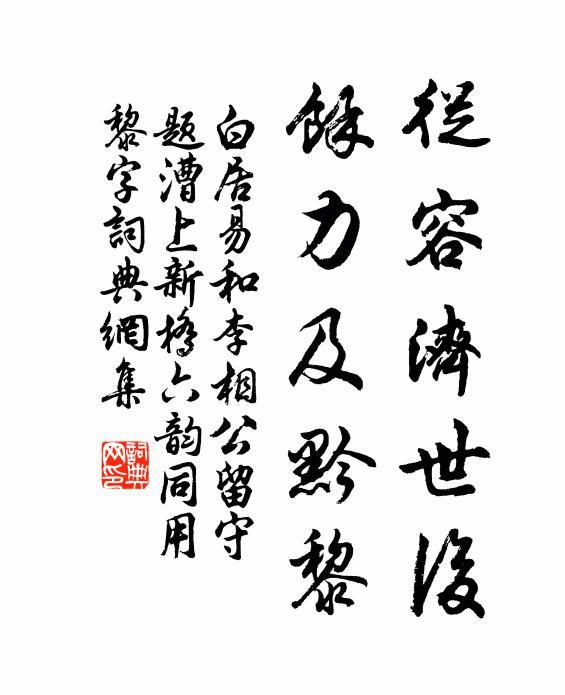 從容濟世後
餘力及黔黎
白居易和李相公留守
题漕上新橋六韵同用
黎字詞典網集
詞典
网印